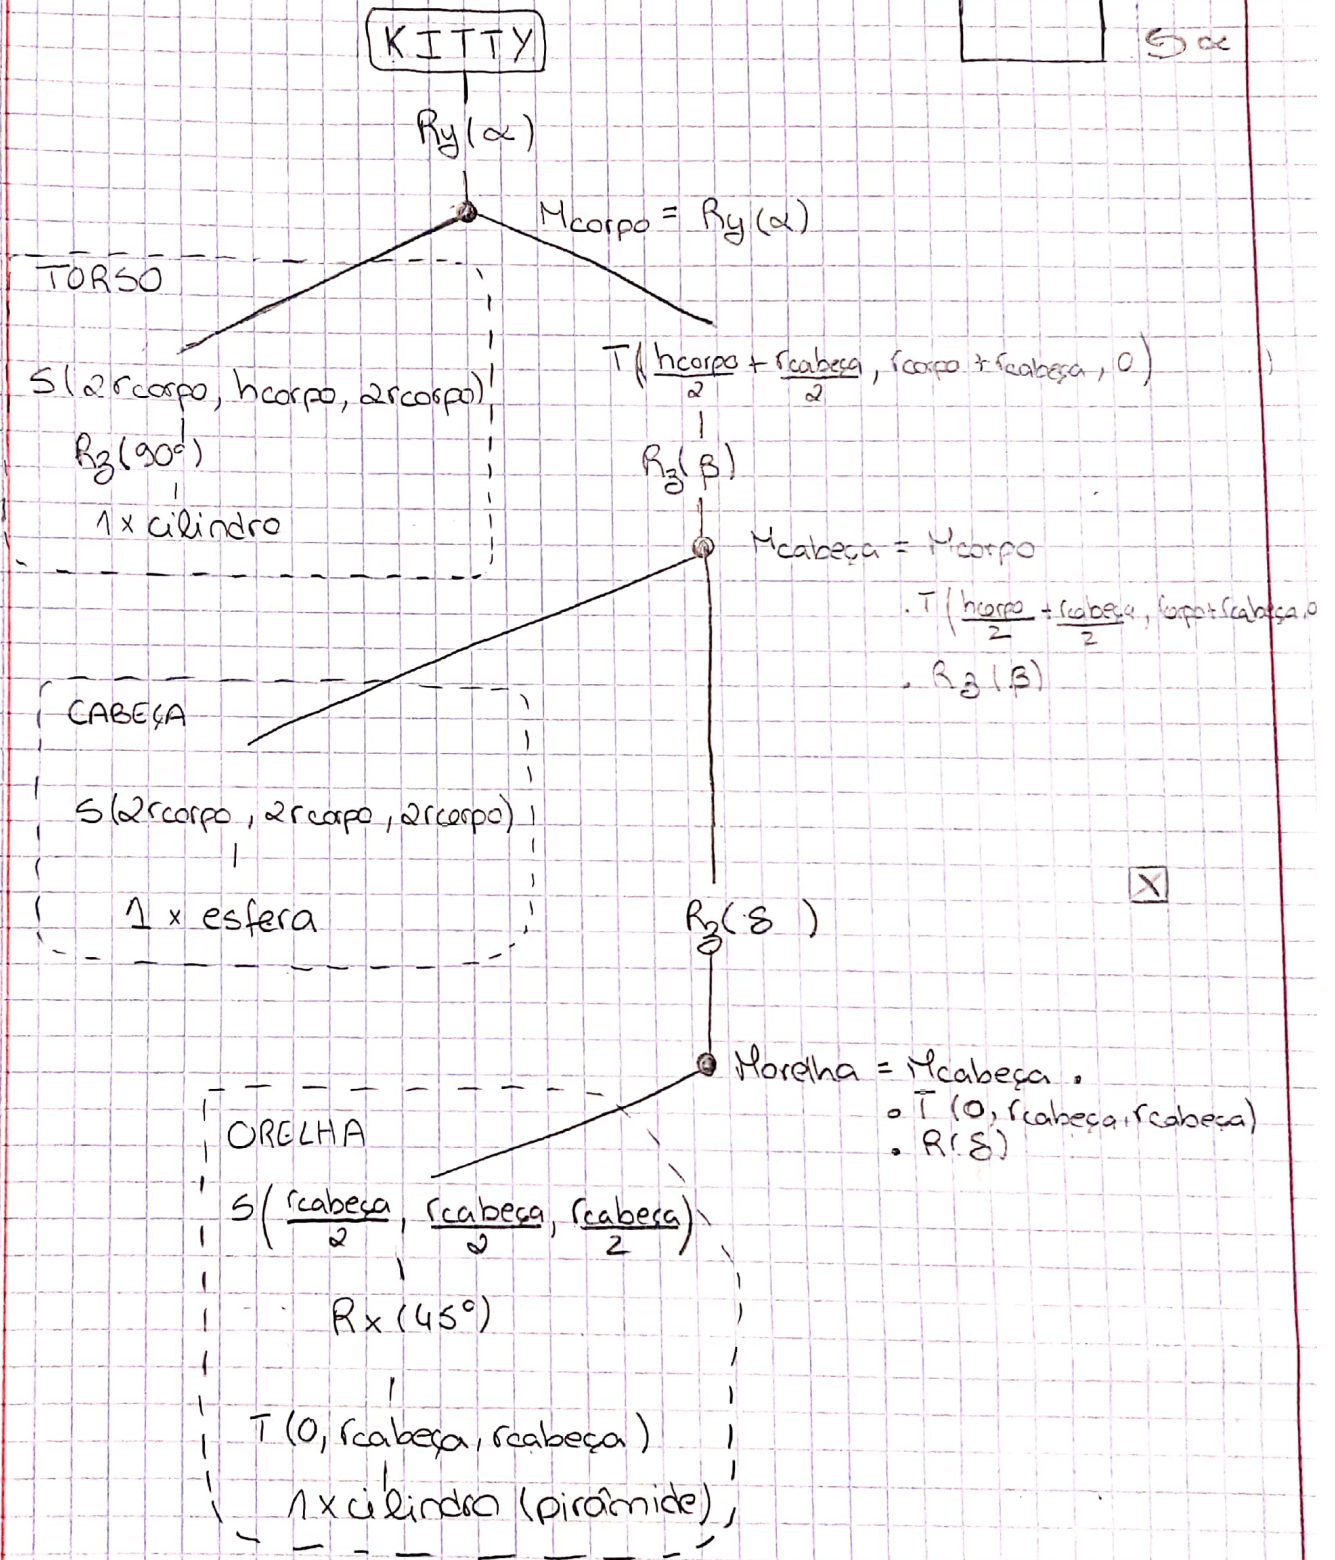 KITTY
5 α
Ry(α)
Mcorpo = Ry(α)
TORSO
S(2rcorpo, hcorpo, 2rcorpo)
Rz(90º)
1x cilindro
T(hcorpo/2 + rcabeça/2, rcorpo + rcabeça, 0)
Rz(β)
Mcabeça = Mcorpo
. T(hcorpo/2 + rcabeça/2, rcorpo + rcabeça, 0
. Rz(β)
CABEÇA
S(2rcorpo, 2rcorpo, 2rcorpo)
1 x esfera
X
Rz(δ )
Morelha = Mcabeça .
. T(0, rcabeça, rcabeça)
. R(δ)
ORELHA
S(rcabeça/2, rcabeça/2, rcabeça/2)
Rx(45º)
T(0, rcabeça, rcabeça)
1x cilindro (pirâmide)